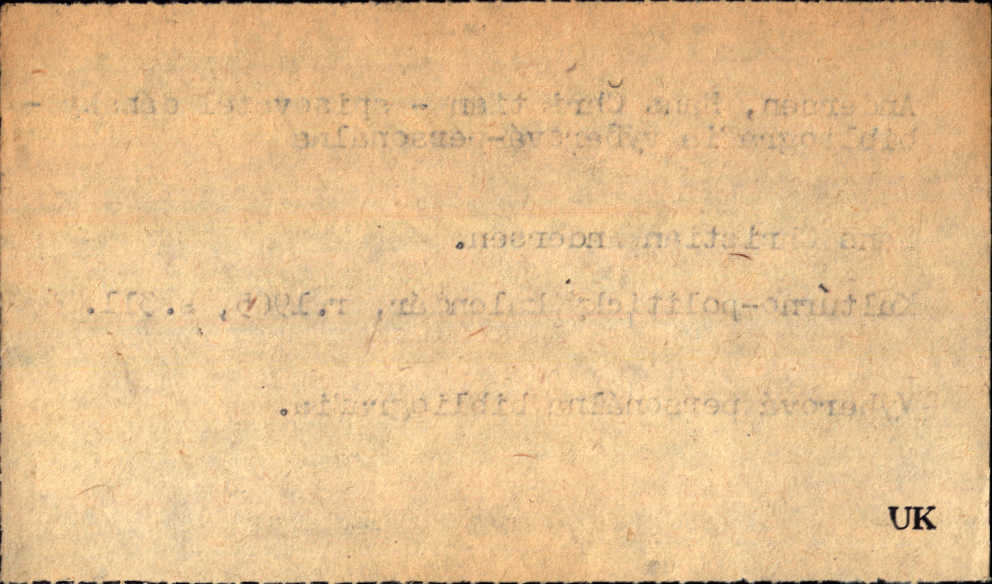 Andersen, Hans Christian - spisovateľ dánsky -
bibliografia výberová-personálna
Hans Christian Andersen.
Kultúrno-politický kalendár, r.1965, s.311.
Výberová personálna bibliografia.
UK